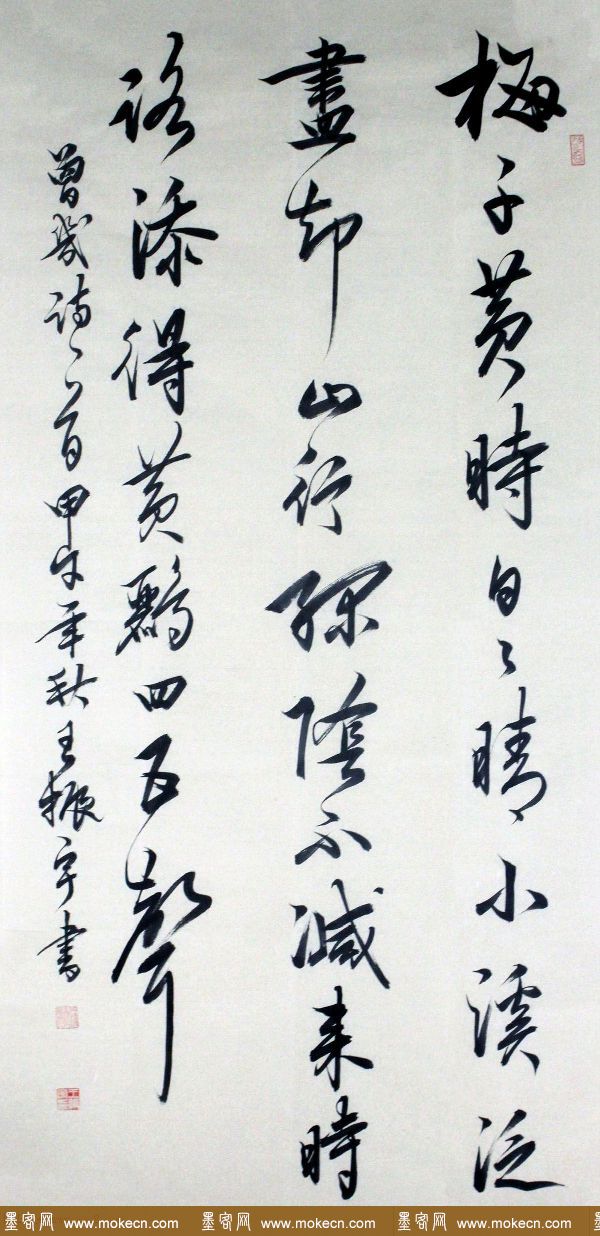 梅子黄時日々晴小溪泛
盡却山行綠陰不減来時
路添得黄鸝四五聲
曾幾詩一首甲午年秋王振宇書
墨客网 www.mokecn.com 墨客网 www.mokecn.com 墨客网 www.mokecn.com